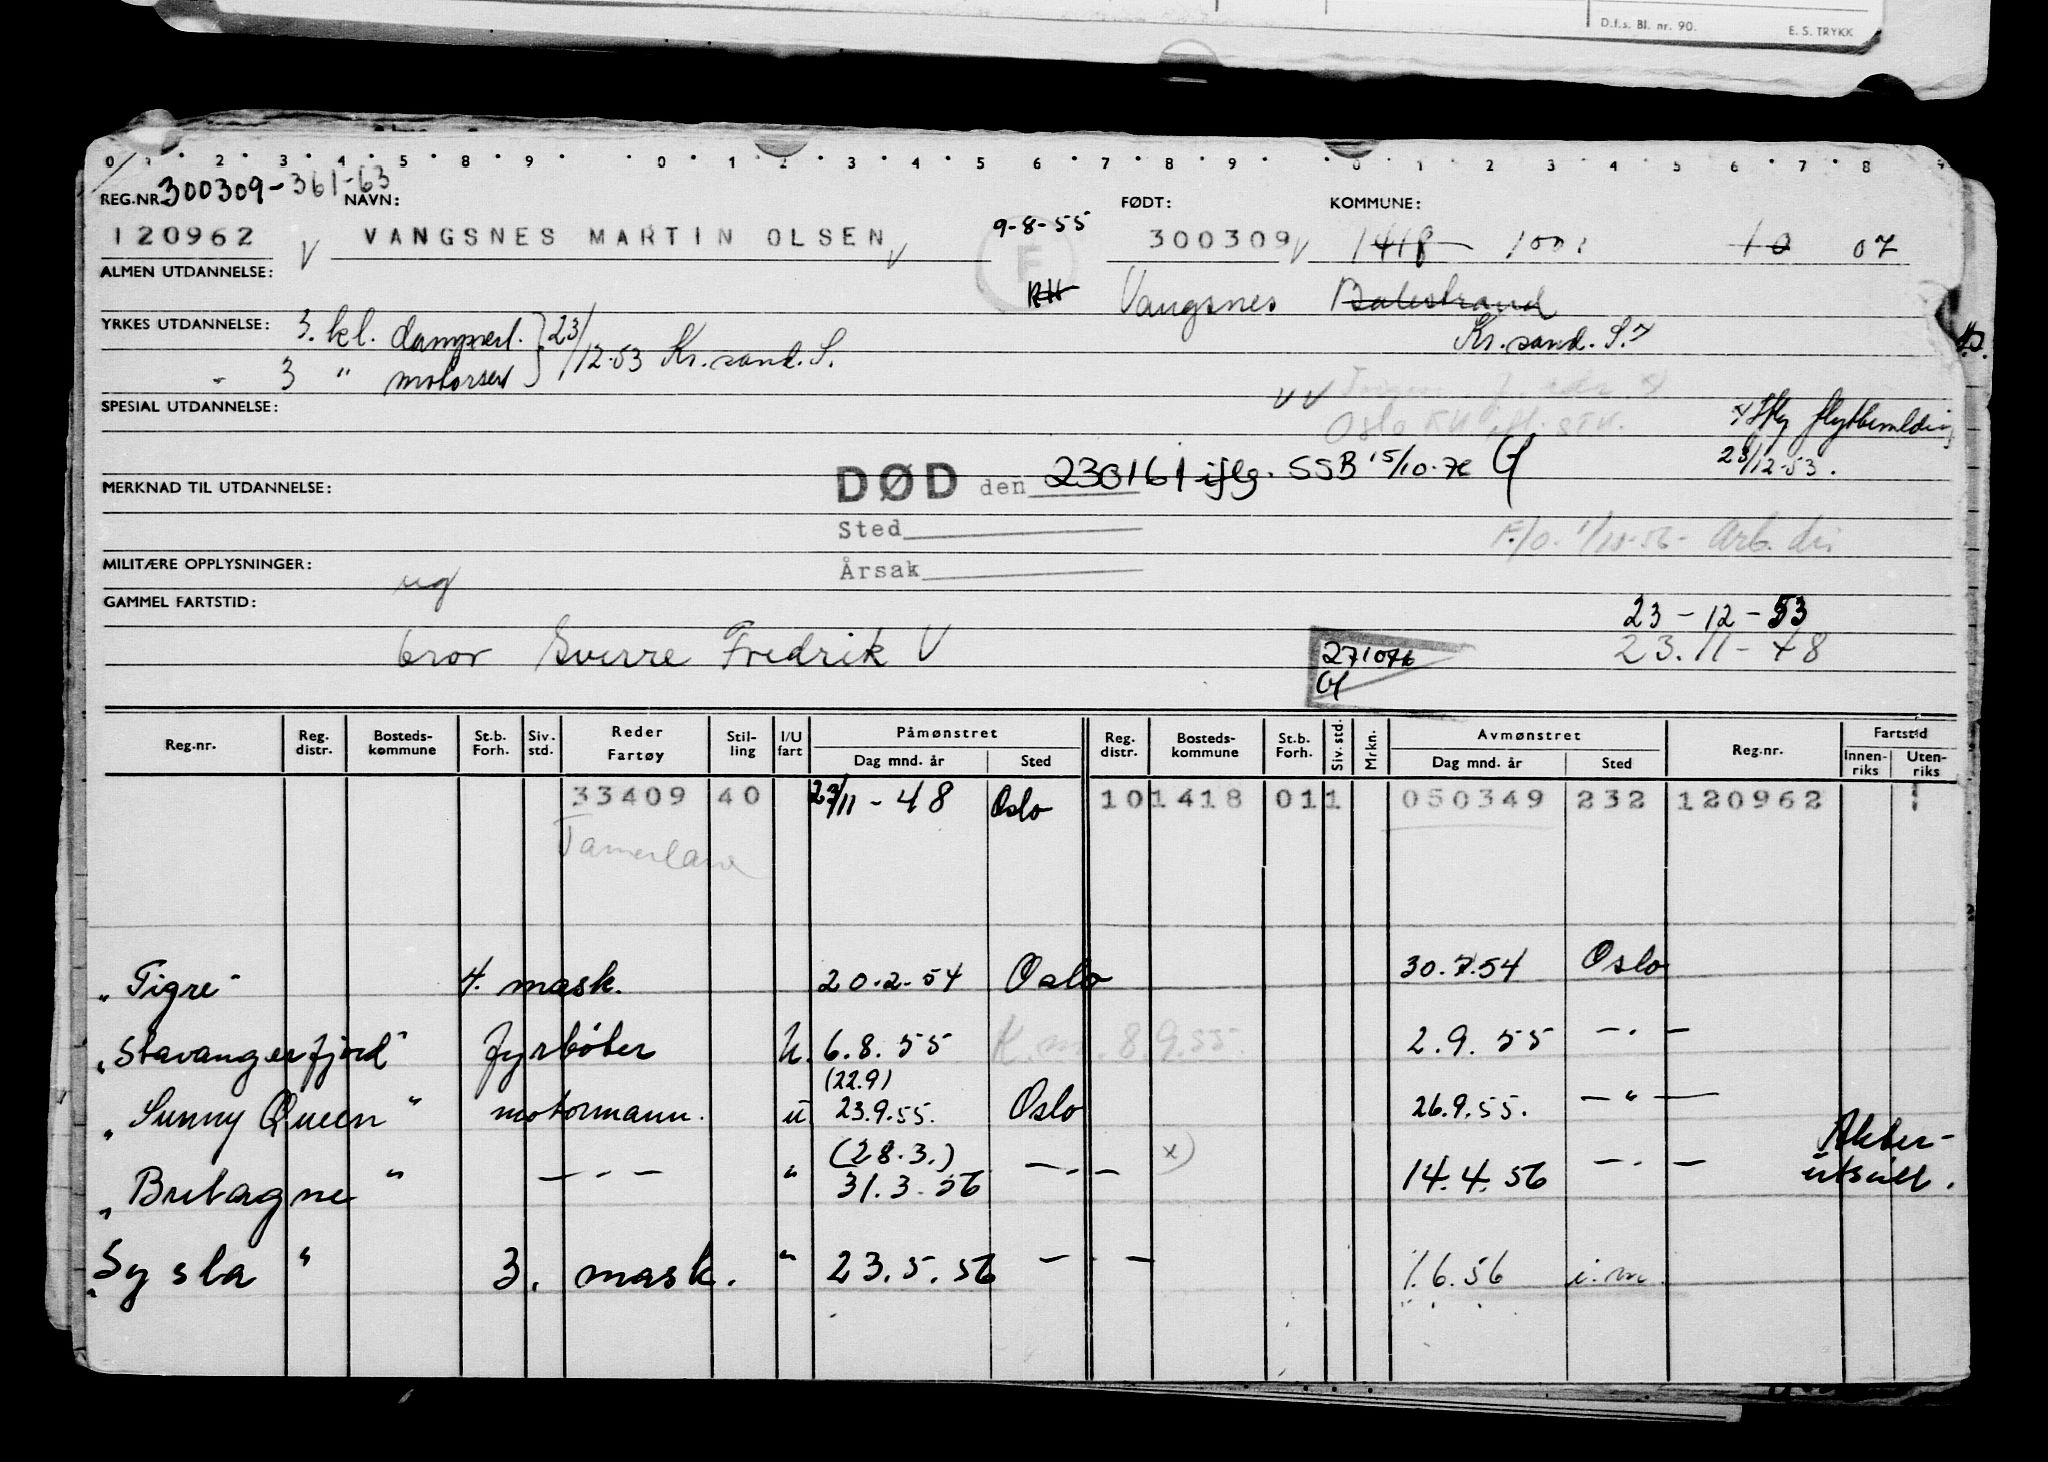 D.f.s. Bl. nr. 90. E. S. TRYKK
0 1 2 3 4 5 8 9 0 1 2 3 4 5 6 7 8 9 0 1 2 3 4 5 6 7 8 9
REG.NR. 300309-361-63 NAVN: FØDT: KOMMUNE:
120962 V VANGSNES MARTIN OLSEN V 9-8-55 300309 V 1418 1001 10 07
ALMEN UTDANNELSE: F
RH Vangsnes Balestrand
YRKES UTDANNELSE: 3. kl. dampsert. } 23/12-53 Kr.sand. S. Kr.sand. S. 7
" 3 " motorsert
SPESIAL UTDANNELSE: V V
Oslo x) Iflg flyttemelding
23/12-53.
DØD den 230161 iflg. SSB 15/10-76
MERKNAD TIL UTDANNELSE:
Sted
F/O. 1/10-56- Arb. dir
MILITÆRE OPPLYSNINGER: ug Årsak
GAMMEL FARTSTID: 23-12-53
bror Sverre Fredrik V 271076 23.11-48
Reg.nr. Reg. distr. Bosteds-kommune St.b. Forh. Siv. std. Reder Fartøy Stil-ling I/U fart Påmønstret Dag mnd. år Sted Reg. distr. Bosteds-kommune St.b. Forh. Siv. std. Mrkn. Avmønstret Dag mnd. år Sted Reg.nr. Fartstid Innen-riks Uten-riks
33409 40 23/11-48 Oslo 10 1418 01 1 050349 232 120962 1
Tamerlane
"Tigre" 4. mask. 20.2.54 Oslo 30.7.54 Oslo
"Stavangerfjord" fyrbøter U. 6.8.55 K.m. 8.9.55. 2.9.55 — " —
(22.9)
"Sunny Queen" motormann. u 23.9.55. Oslo 26.9.55. — " —
(28.3.) x) Akter-
"Bretagne" — " — " 31.3.56 — " — 14.4.56 — " — utseilt.
"Sysla" 3. mask. " 23.5.56 — " — 1.6.56 i.m.